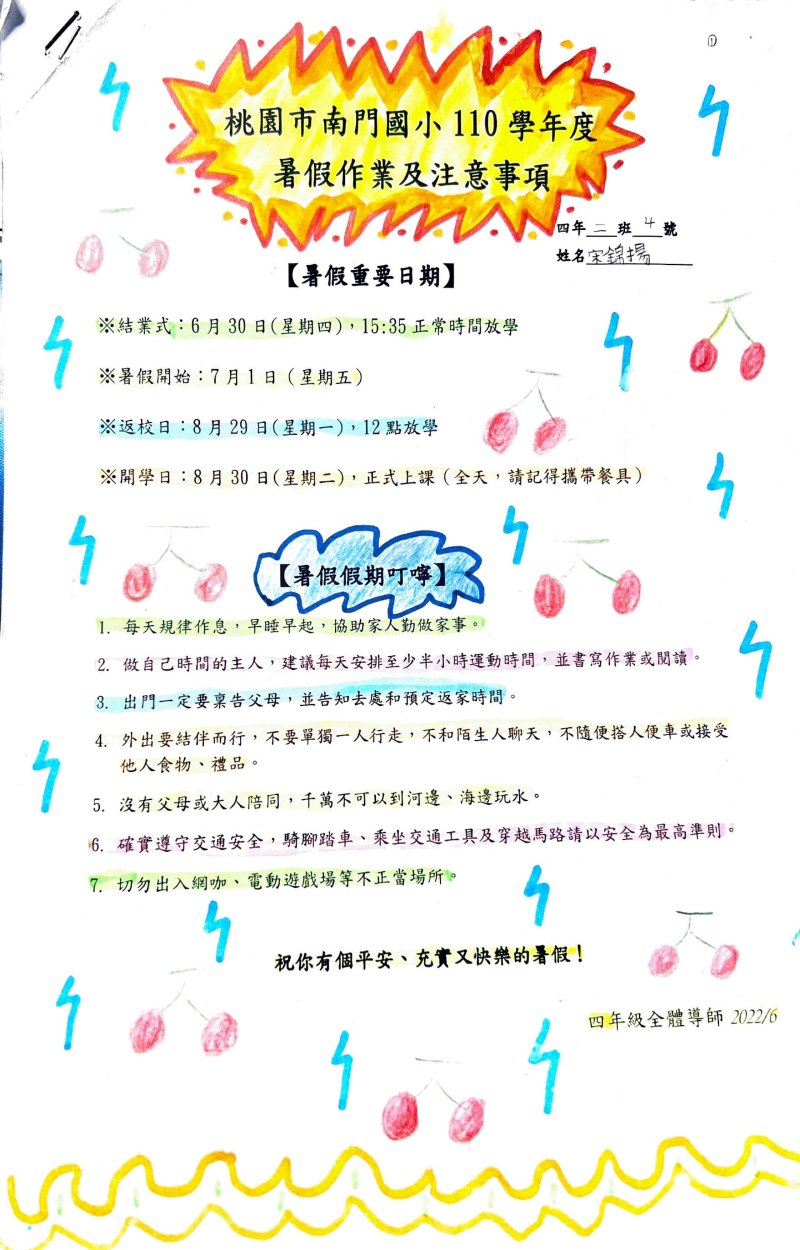 ①
桃園市南門國小110學年度
暑假作業及注意事項
四年二班4號
姓名宋錦揚
【暑假重要日期】
※結業式：6月30日(星期四)，15:35正常時間放學
※暑假開始：7月1日（星期五）
※返校日：8月29日(星期一)，12點放學
※開學日：8月30日(星期二)，正式上課（全天，請記得攜帶餐具）
【暑假假期叮嚀】
1. 每天規律作息，早睡早起，協助家人勤做家事。
2. 做自己時間的主人，建議每天安排至少半小時運動時間，並書寫作業或閱讀。
3. 出門一定要稟告父母，並告知去處和預定返家時間。
4. 外出要結伴而行，不要單獨一人行走，不和陌生人聊天，不隨便搭人便車或接受
他人食物、禮品。
5. 沒有父母或大人陪同，千萬不可以到河邊、海邊玩水。
6. 確實遵守交通安全，騎腳踏車、乘坐交通工具及穿越馬路請以安全為最高準則。
7. 切勿出入網咖、電動遊戲場等不正當場所。
祝你有個平安、充實又快樂的暑假！
四年級全體導師 2022/6